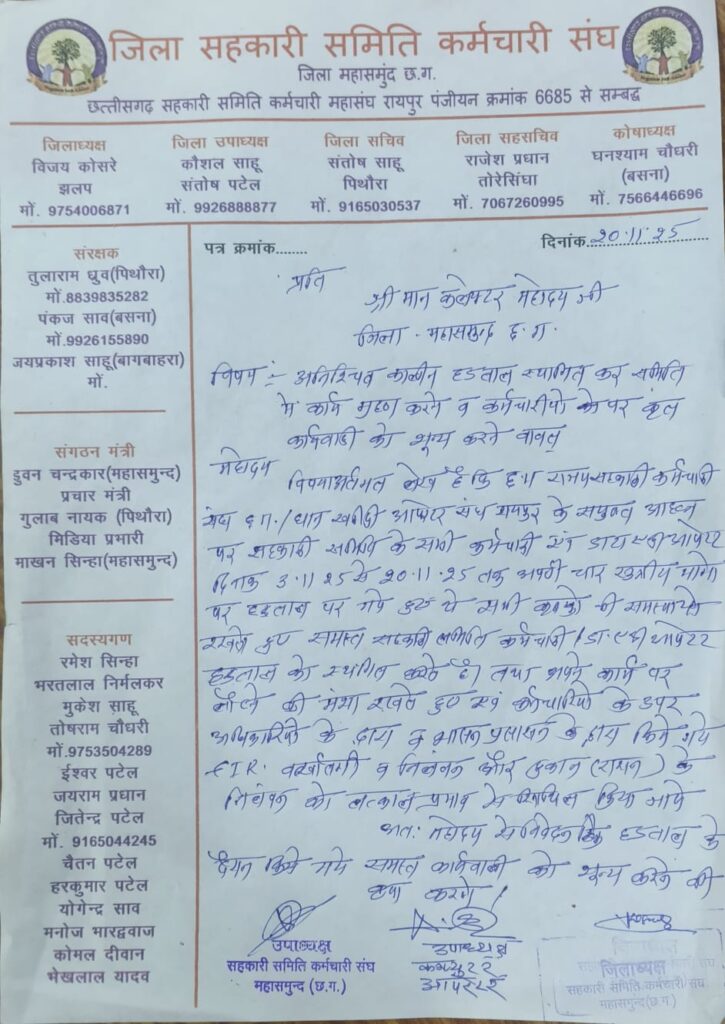 जिला सहकारी समिति कर्मचारी संघ
जिला महासमुंद छ.ग.
छत्तीसगढ़ सहकारी समिति कर्मचारी महासंघ रायपुर पंजीयन क्रमांक 6685 से सम्बद्ध
जिलाध्यक्ष
विजय कोसरे
झलप
मों. 9754006871
जिला उपाध्यक्ष
कौशल साहू
संतोष पटेल
मों. 9926888877
जिला सचिव
संतोष साहू
पिथौरा
मों. 9165030537
जिला सहसचिव
राजेश प्रधान
तोरेसिंघा
मों. 7067260995
कोषाध्यक्ष
घनश्याम चौधरी
(बसना)
मों. 7566446696
संरक्षक
तुलाराम ध्रुव(पिथौरा)
मों.8839835282
पंकज साव(बसना)
मों.9926155890
जयप्रकाश साहू(बागबाहरा)
मों.
संगठन मंत्री
डुवन चन्द्रकार(महासमुन्द)
प्रचार मंत्री
गुलाब नायक (पिथौरा)
मिडिया प्रभारी
माखन सिन्हा(महासमुन्द)
सदस्यगण
रमेश सिन्हा
भरतलाल निर्मलकर
मुकेश साहू
तोषराम चौधरी
मों.9753504289
ईश्वर पटेल
जयराम प्रधान
जितेन्द्र पटेल
मों. 9165044245
चैतन पटेल
हरकुमार पटेल
योगेन्द्र साव
मनोज भारद्वाज
कोमल दीवान
भेखलाल यादव
पत्र क्रमांक........
दिनांक 20.11.25
प्रति
श्री मान कलेक्टर महोदय जी
जिला - महासमुन्द छ.ग.
विषय :- अनिश्चित कालीन हडताल स्थगित कर समिति
में कार्य ग्रहण करने व कर्मचारीयो के पर कृत
कार्यवाही को शून्य करने बाबत्
महोदय
विषयाअंर्तगत लेख है कि छ.ग सहकारी कर्मचारी
संघ छ.ग./धान खरीदी आपरेटर संघ रायपुर के संयुक्त
पर सहकारी समिति के सभी कर्मचारी एवं डाटा एन्ट्री आपरेटर
दिनांक 3.11.25 से 20.11.25 तक अपनी चार सूत्रीय मांगो
पर हडताल पर गये हुए थे सभी की समस्या को
रखते हुए समस्त सहकारी समिति कर्मचारी / आपरेटर
हडताल को स्थगित करते है। तथा अपने कार्य पर
लौटने की मंशा रखते हुए एवं कर्मचारियो के उपर
अधिकारियो के द्वारा व शासन प्रशासन के द्वारा किये गये
FIR. बर्खास्तगी व निलंबन और दुकान (राशन) के
निलंबन को तत्काल प्रभाव से किया जाये
अत: महोदय से निवेदन है कि हडताल के
दौरान किये गये समस्त कार्यवाही को शून्य करने की
कृपा करेंगे!
उपाध्यक्ष
सहकारी समिति कर्मचारी संघ
महासमुन्द (छ.ग.)
उपाध्यक्ष
कम्प्यूटर
आपरेटर
जिलाध्यक्ष
सहकारी समिति कर्मचारी संघ
महासमुन्द(छ.ग.)